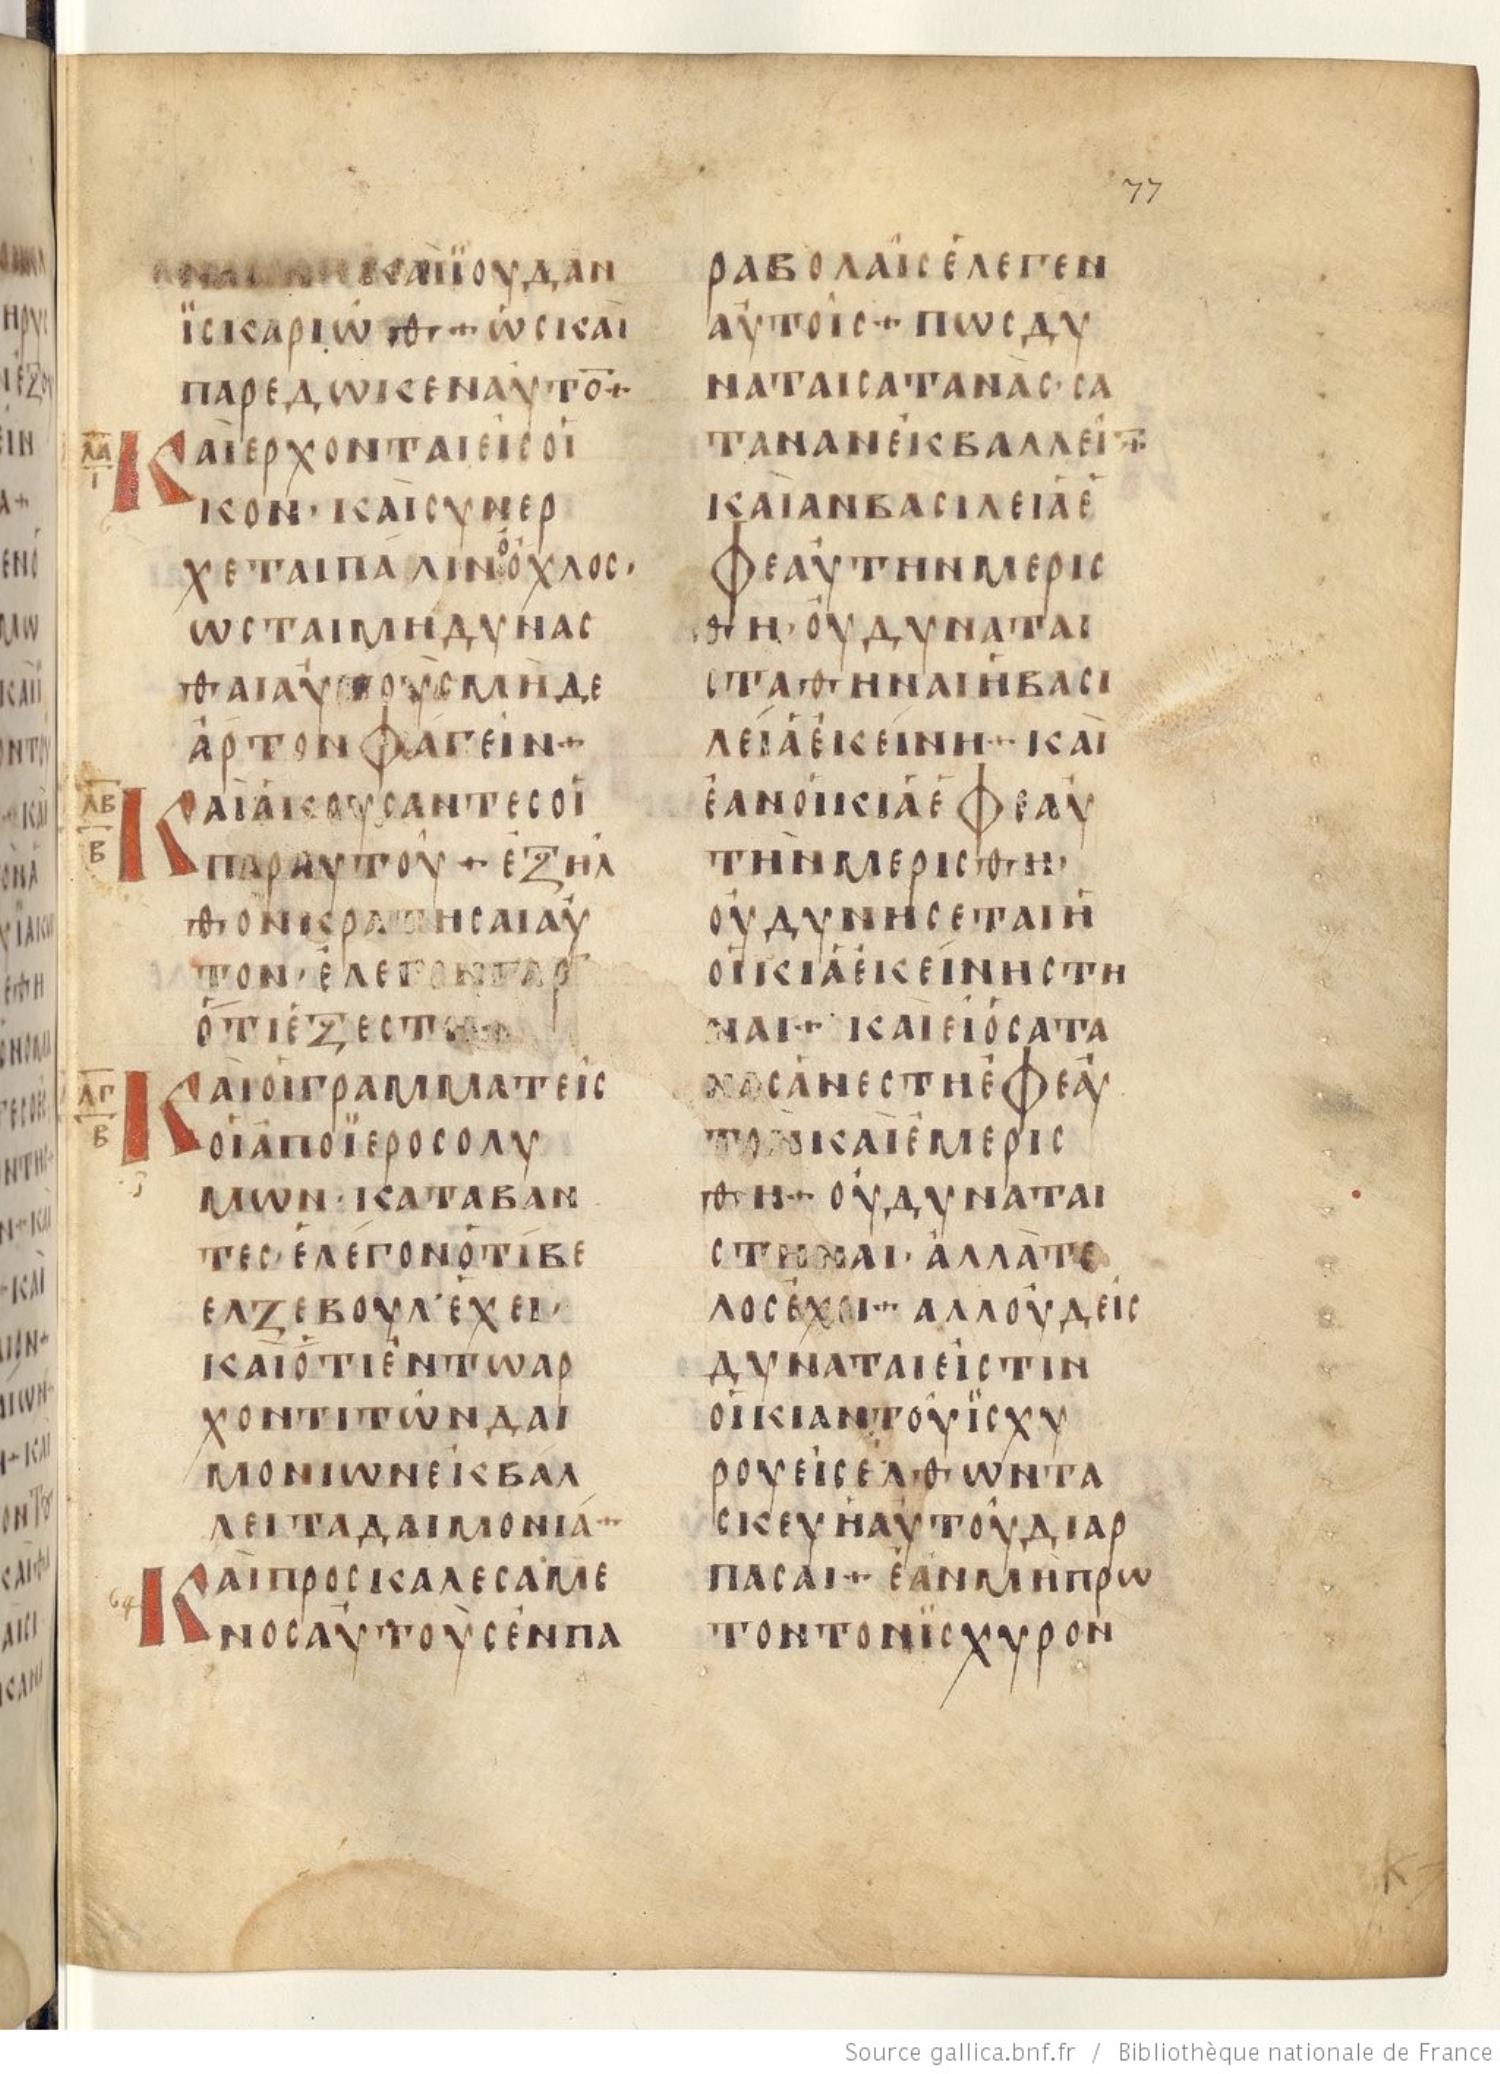 77
ΚΑΙ ΪΟΥΔΑΝ
ΪΣΚΑΡΙΩΘ + ΩΣ ΚΑΙ
ΠΑΡΕΔΩΚΕΝ ΑΥΤΟ̅ +
ΛΑ
Ι
ΚΑΙ ΕΡΧΟΝΤΑΙ ΕΙΣ ΟΙ
ΚΟΝ · ΚΑΙ ΣΥΝΕΡ
ΧΕΤΑΙ ΠΑΛΙΝ Ο ΟΧΛΟΣ ·
ΩΣΤΑΙ ΜΗ ΔΥΝΑΣ
ΘΑΙ ΑΥΤΟΥΣ ΜΗΔΕ
ΑΡΤΟΝ ΦΑΓΕΙΝ +
ΛΒ
Β
ΚΑΙ ΑΚΟΥΣΑΝΤΕΣ ΟΙ
ΠΑΡ ΑΥΤΟΥ + ΕΞΗΛ
ΘΟΝ ΚΡΑΤΗΣΑΙ ΑΥ
ΤΟΝ · ΕΛΕΓΟΝ ΓΑΡ
ΟΤΙ ΕΞΕΣΤΗ +
ΛΓ
Β
ΚΑΙ ΟΙ ΓΡΑΜΜΑΤΕΙΣ
ΟΙ ΑΠΟ ΪΕΡΟΣΟΛΥ
ΜΩΝ · ΚΑΤΑΒΑΝ
ΤΕΣ · ΕΛΕΓΟΝ ΟΤΙ ΒΕ
ΕΛΖΕΒΟΥΛ ΕΧΕΙ ·
ΚΑΙ ΟΤΙ ΕΝ ΤΩ ΑΡ
ΧΟΝΤΙ ΤΩΝ ΔΑΙ
ΜΟΝΙΩΝ ΕΚΒΑΛ
ΛΕΙ ΤΑ ΔΑΙΜΟΝΙΑ +
64
ΚΑΙ ΠΡΟΣΚΑΛΕΣΑΜΕ
ΝΟΣ ΑΥΤΟΥΣ ΕΝ ΠΑ
ΡΑΒΟΛΑΙΣ ΕΛΕΓΕΝ
ΑΥΤΟΙΣ + ΠΩΣ ΔΥ
ΝΑΤΑΙ ΣΑΤΑΝΑΣ · ΣΑ
ΤΑΝΑΝ ΕΚΒΑΛΛΕΙ̅
ΚΑΙ ΑΝ ΒΑΣΙΛΕΙΑ Ε
Φ ΕΑΥΤΗΝ ΜΕΡΙΣ
ΘΗ · ΟΥ ΔΥΝΑΤΑΙ
ΣΤΑΘΗΝΑΙ Η ΒΑΣΙ
ΛΕΙΑ ΕΚΕΙΝΗ + ΚΑΙ
ΕΑΝ ΟΙΚΙΑ ΕΦ ΕΑΥ
ΤΗΝ ΜΕΡΙΣΘΗ ·
ΟΥ ΔΥΝΗΣΕΤΑΙ Η
ΟΙΚΙΑ ΕΚΕΙΝΗ ΣΤΗ
ΝΑΙ + ΚΑΙ ΕΙ Ο ΣΑΤΑ
ΝΑΣ ΑΝΕΣΤΗ ΕΦ ΕΑΥ
ΤΟΝ ΚΑΙ ΕΜΕΡΙΣ
ΘΗ + ΟΥ ΔΥΝΑΤΑΙ
ΣΤΗΝΑΙ · ΑΛΛΑ ΤΕ
ΛΟΣ ΕΧΕΙ + ΑΛΛ ΟΥΔΕΙΣ
ΔΥΝΑΤΑΙ ΕΙΣ ΤΙΝ
ΟΙΚΙΑΝ ΤΟΥ ΪΣΧΥ
ΡΟΥ ΕΙΣΕΛΘΩΝ ΤΑ
ΣΚΕΥΗ ΑΥΤΟΥ ΔΙΑΡ
ΠΑΣΑΙ + ΕΑΝ ΜΗ ΠΡΩ
ΤΟΝ ΤΟΝ ΪΣΧΥΡΟΝ
Source gallica.bnf.fr / Bibliothèque nationale de France